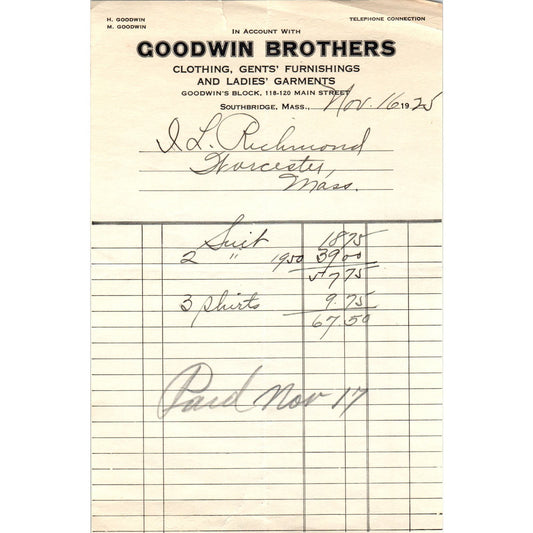 H. GOODWIN
M. GOODWIN
TELEPHONE CONNECTION
IN ACCOUNT WITH
GOODWIN BROTHERS
CLOTHING, GENTS' FURNISHINGS
AND LADIES' GARMENTS
GOODWIN'S BLOCK, 118-120 MAIN STREET
SOUTHBRIDGE, MASS., Nov. 16 1925
I. L. Richmond
Worcester,
Mass.
Suit 18 75
2 " 19 50 39 00
57 75
3 shirts 9. 75
67. 50
Paid Nov 17